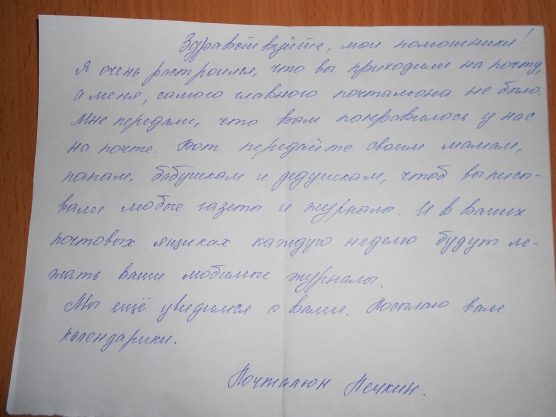 Здравствуйте, мои помошники!
Я очень растроился, что вы приходили на почту,
а меня, самого главного почтальона не было.
Мне передали, что вам понравилось у нас
на почте. Вот передайте своим мамам,
папам, бабушкам и дедушкам, чтоб выписы-
вали любые газеты и журналы. И в ваших
почтовых ящиках каждую неделю будут ле-
жать ваши любимые журналы.
Мы ещё увидимся с вами. Посылаю вам
календарики.
Почтальон Печкин.